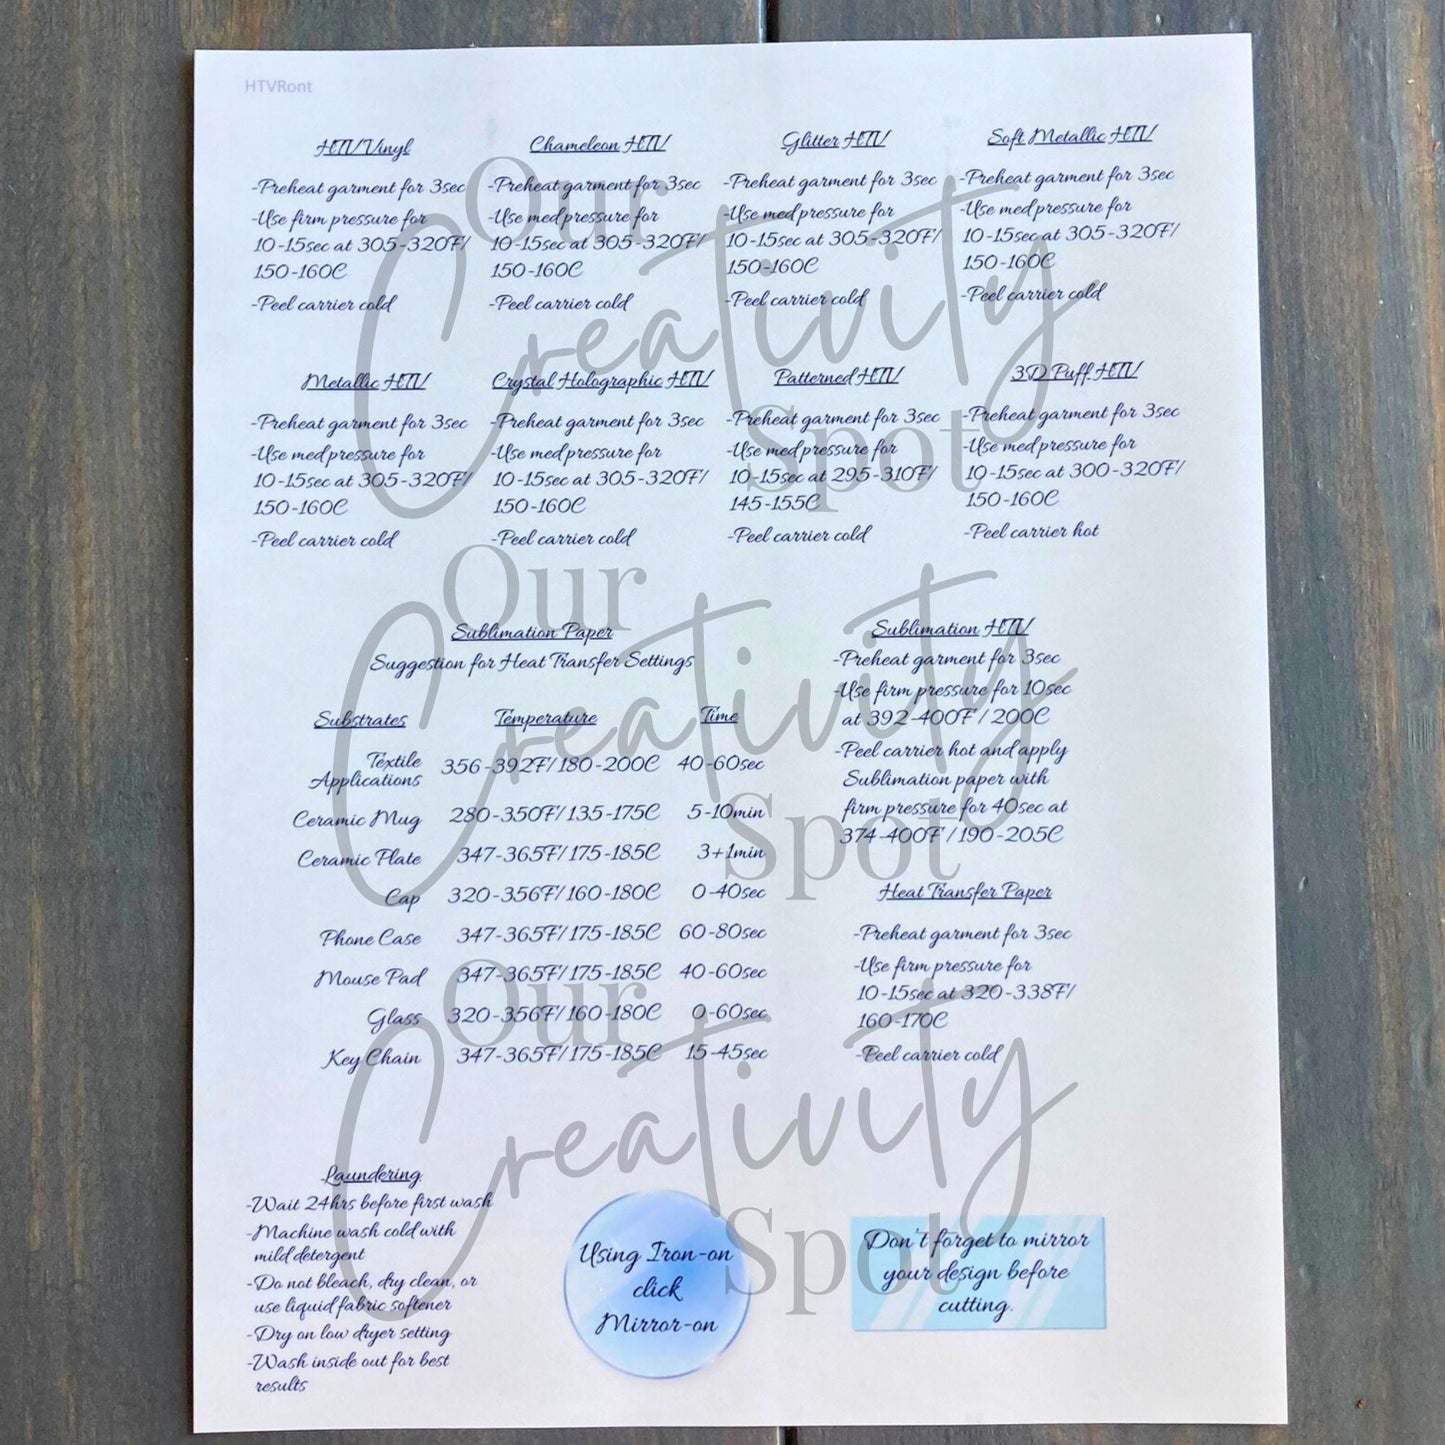 HTVRont
HTV Vinyl
-Preheat garment for 3sec
-Use firm pressure for
10-15sec at 305-320F/
150-160C
-Peel carrier cold
Chameleon HTV
-Preheat garment for 3sec
-Use med pressure for
10-15sec at 305-320F/
150-160C
-Peel carrier cold
Glitter HTV
-Preheat garment for 3sec
-Use med pressure for
10-15sec at 305-320F/
150-160C
-Peel carrier cold
Soft Metallic HTV
-Preheat garment for 3sec
-Use med pressure for
10-15sec at 305-320F/
150-160C
-Peel carrier cold
Metallic HTV
-Preheat garment for 3sec
-Use med pressure for
10-15sec at 305-320F/
150-160C
-Peel carrier cold
Crystal Holographic HTV
-Preheat garment for 3sec
-Use med pressure for
10-15sec at 305-320F/
150-160C
-Peel carrier cold
Patterned HTV
-Preheat garment for 3sec
-Use med pressure for
10-15sec at 295-310F/
145-155C
-Peel carrier cold
3D Puff HTV
-Preheat garment for 3sec
-Use med pressure for
10-15sec at 300-320F/
150-160C
-Peel carrier hot
Sublimation Paper
Suggestion for Heat Transfer Settings
Substrates Temperature Time
Textile
Applications 356-392F/180-200C 40-60sec
Ceramic Mug 280-350F/135-175C 5-10min
Ceramic Plate 347-365F/175-185C 3+1min
Cap 320-356F/160-180C 0-40sec
Phone Case 347-365F/175-185C 60-80sec
Mouse Pad 347-365F/175-185C 40-60sec
Glass 320-356F/160-180C 0-60sec
Key Chain 347-365F/175-185C 15-45sec
Sublimation HTV
-Preheat garment for 3sec
-Use firm pressure for 10sec
at 392-400F/200C
-Peel carrier hot and apply
Sublimation paper with
firm pressure for 40sec at
374-400F/190-205C
Heat Transfer Paper
-Preheat garment for 3sec
-Use firm pressure for
10-15sec at 320-338F/
160-170C
-Peel carrier cold
Laundering
-Wait 24hrs before first wash
-Machine wash cold with
mild detergent
-Do not bleach, dry clean, or
use liquid fabric softener
-Dry on low dryer setting
-Wash inside out for best
results
Using Iron-on
click
Mirror-on
Don't forget to mirror
your design before
cutting.
Our
Creativity
Spot
Our
Creativity
Spot
Our
Creativity
Spot